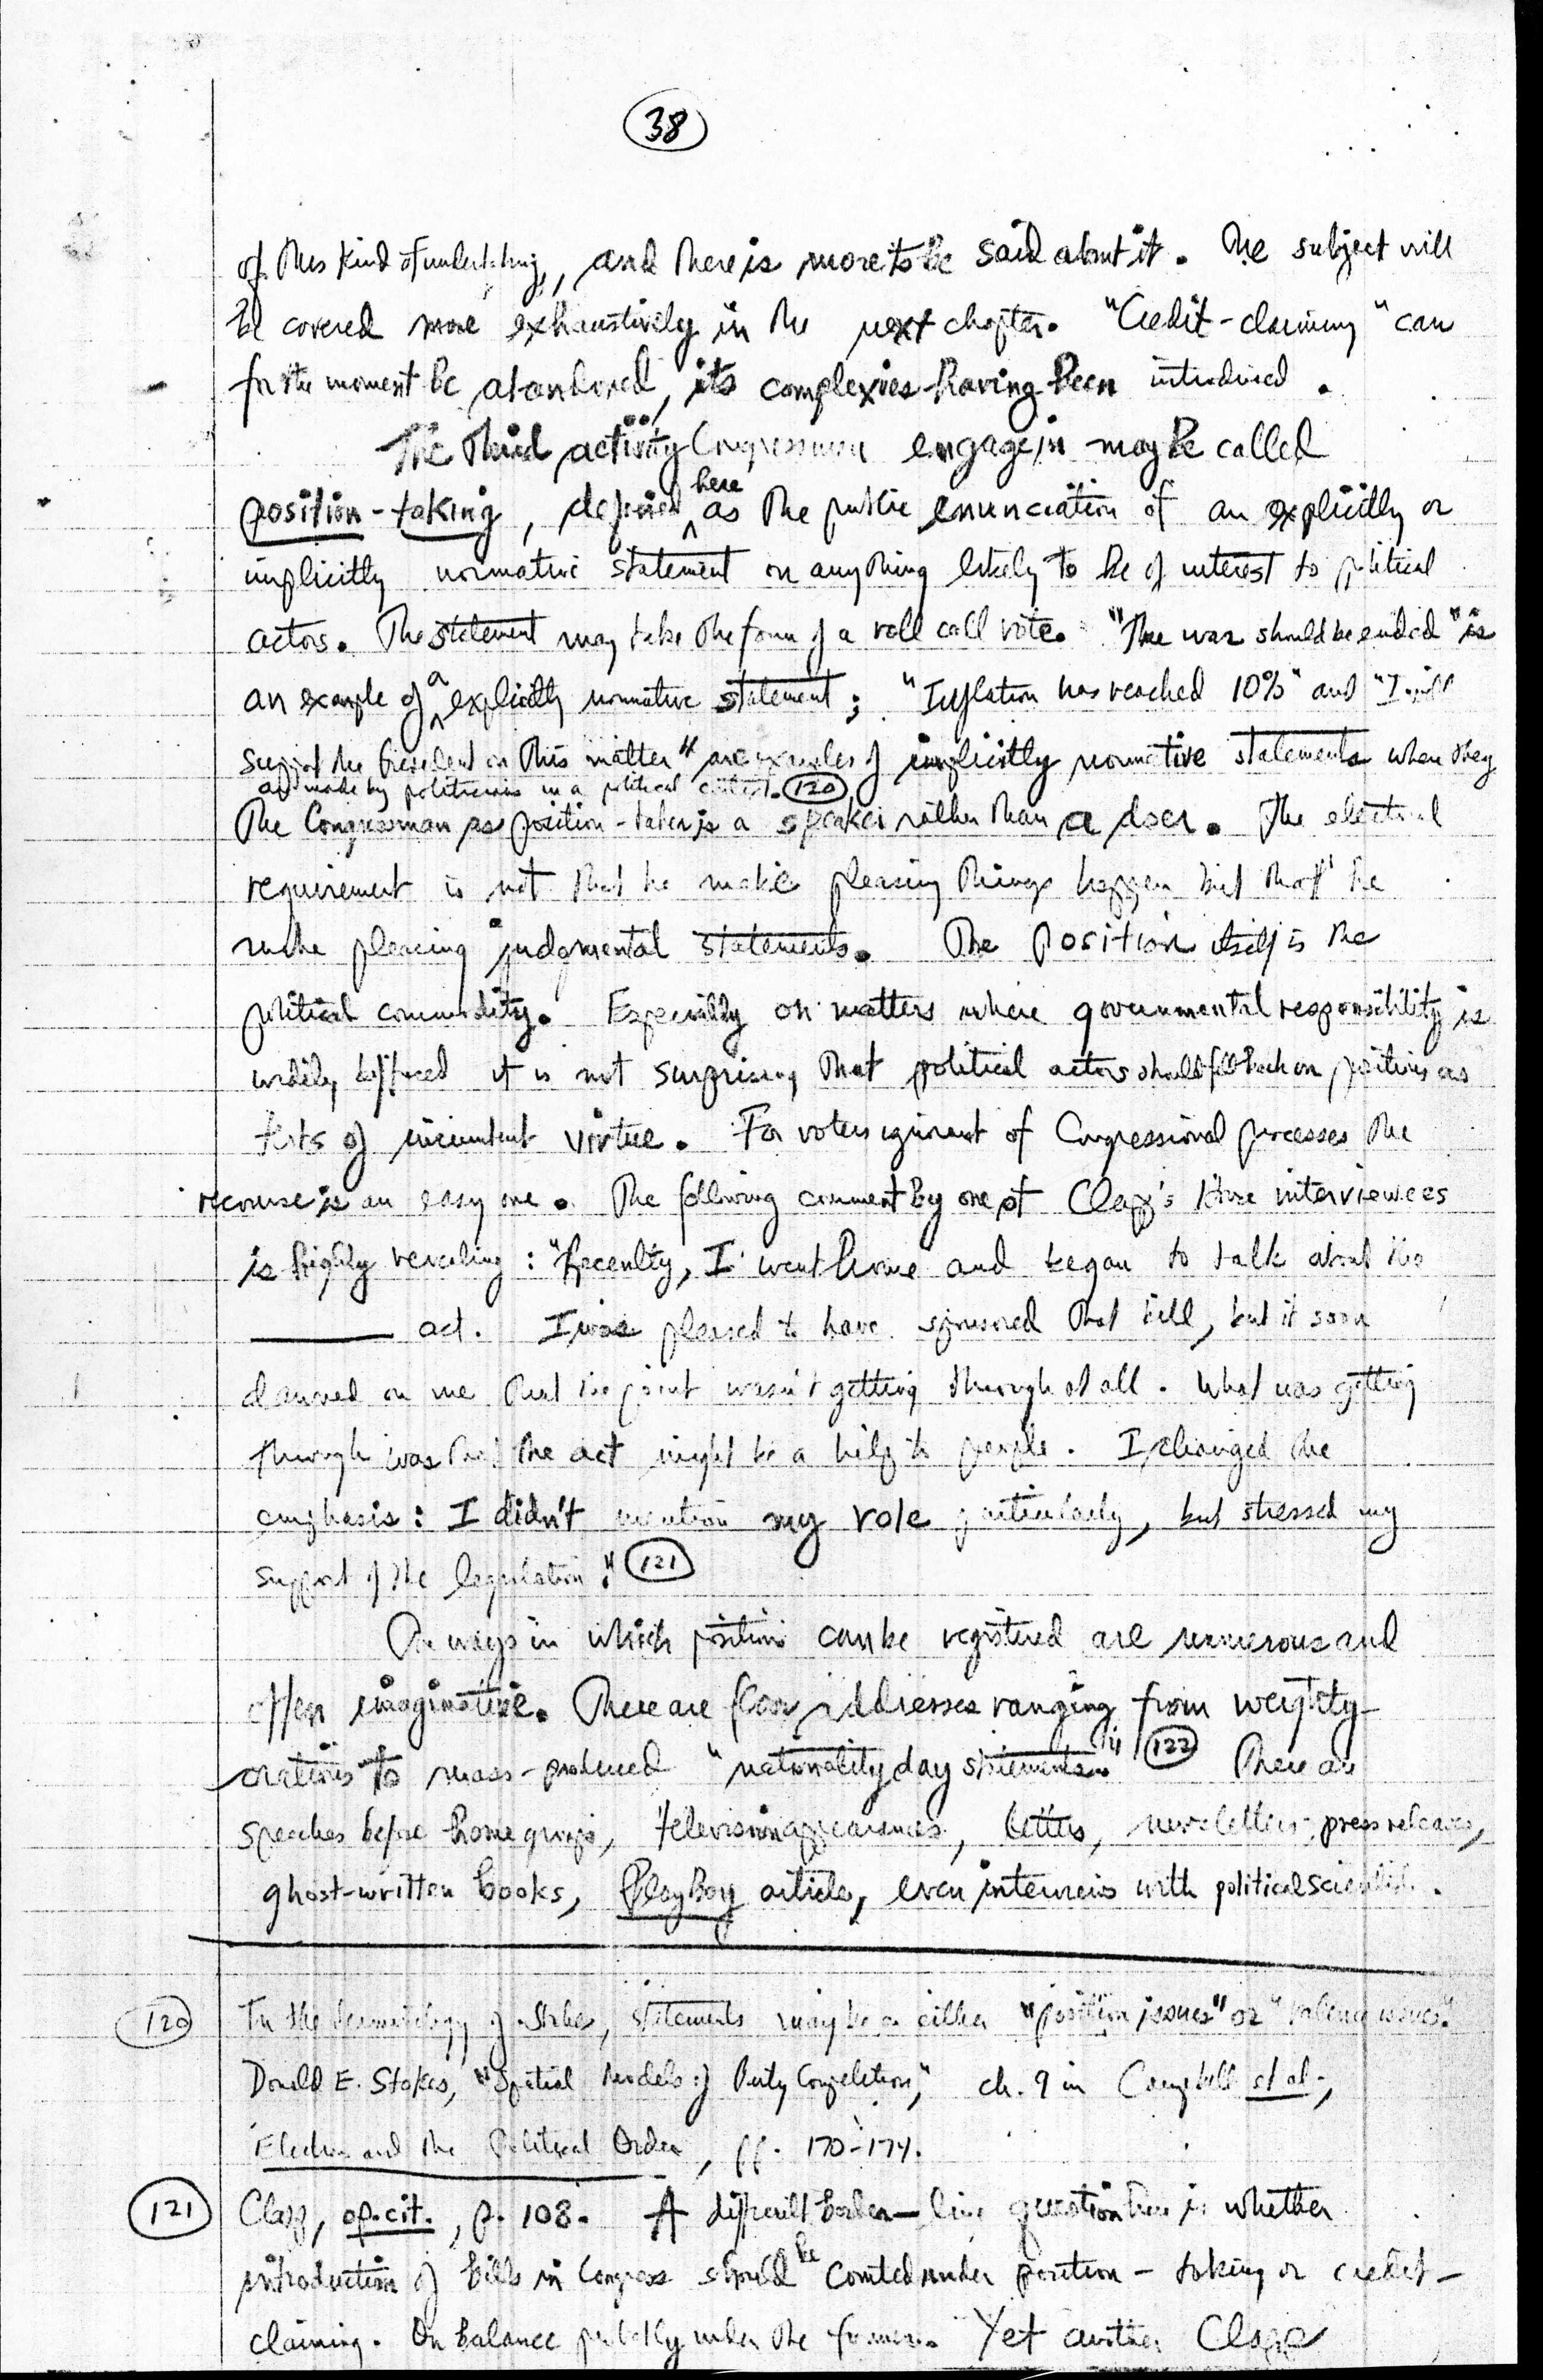 38
of this kind of undertaking, and there is more to be said about it. The subject will
be covered more exhaustively in the next chapter. "Credit-claiming" can
for the moment be abandoned, its complexies having been introduced.
The third activity Congressmen engage in may be called
position-taking, defined here as the public enunciation of an explicitly or
implicitly normative statement on anything likely to be of interest to political
actors. The statement may take the form of a roll call vote. "The war should be ended" is
an example of a explicitly normative statement; "Inflation has reached 10%" and "I will
support the President on this matter" are examples of implicitly normative statements when they
are made by politicians in a political context. 120
The Congressman as position-taker is a speaker rather than a doer. The electoral
requirement is not that he make pleasing things happen but that he
make pleasing judgmental statements. The position itself is the
political commodity. Especially on matters where governmental responsibility is
widely diffused it is not surprising that political actors should fall back on positions as
tests of incumbent virtue. For voters ignorant of Congressional processes the
recourse is an easy one. The following comment by one of Clapp's House interviewees
is highly revealing: "Recently, I went home and began to talk about the
______ act. I was pleased to have sponsored that bill, but it soon
dawned on me that the point wasn't getting through at all. What was getting
through was that the act might be a help to people. I changed the
emphasis: I didn't mention my role particularly, but stressed my
support of the legislation." 121
The ways in which positions can be registered are numerous and
often imaginative. There are floor addresses ranging from weighty
orations to mass-produced "nationality day statements." 122 There are
speeches before home groups, television appearances, letters, newsletters, press releases,
ghost-written books, PlayBoy articles, even interviews with political scientists.
120 In the terminology of Stokes, statements may be on either "position issues" or "valence issues".
Donald E. Stokes, "Spatial Models of Party Competition," ch. 9 in Campbell et al.,
Elections and the Political Order, pp. 170-174.
121 Clapp, op. cit., p. 108. A difficult border-line question here is whether
introduction of bills in Congress should be counted under position-taking or credit-
claiming. On balance probably under the former. Yet another Clapp